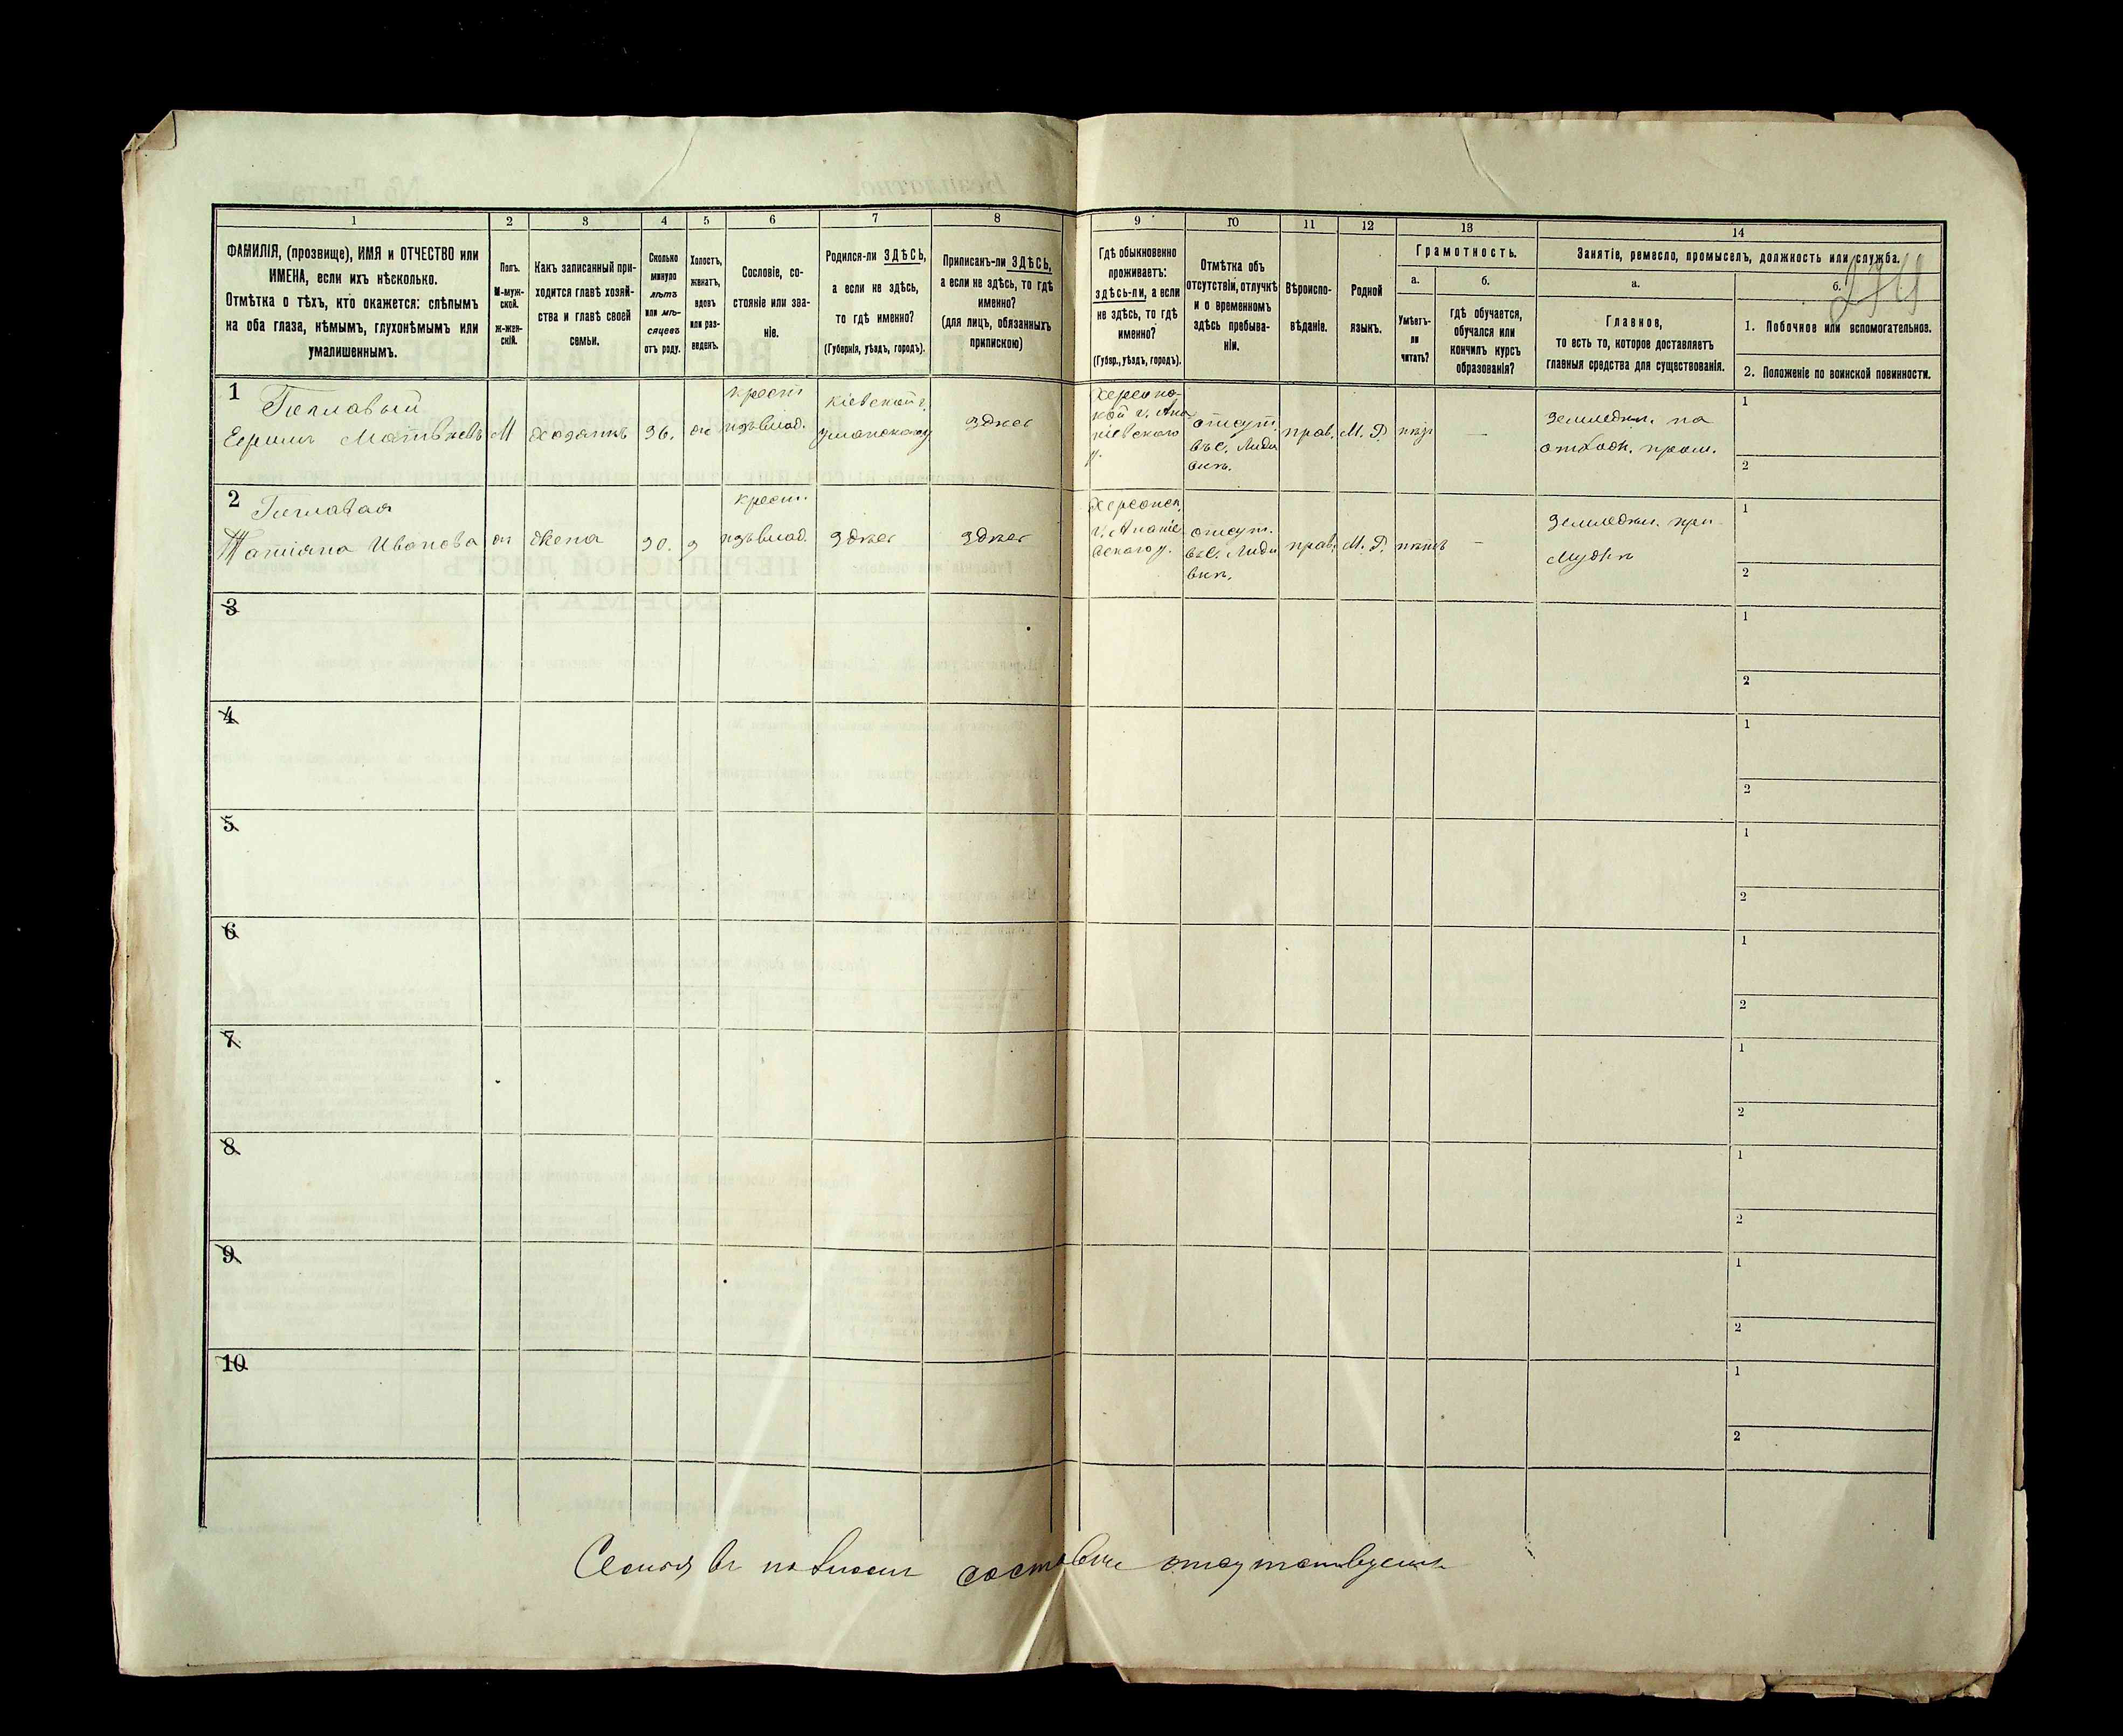 1
2
3
4
5
6
7
8
ФАМИЛІЯ, (прозвище), ИМЯ и ОТЧЕСТВО или
ИМЕНА, если ихъ нѣсколько.
Отмѣтка о тѣхъ, кто окажется: слѣпымъ
на оба глаза, нѣмымъ, глухонѣмымъ или
умалишеннымъ.
Полъ.
М-муж-
ской.
ж-жен-
скій.
Какъ записанный при-
ходится главѣ хозяй-
ства и главѣ своей
семьи.
Сколько
минуло
лѣтъ
или мѣ-
сяцевъ
отъ роду.
Холостъ,
женатъ,
вдовъ
или раз-
веденъ.
Сословіе, со-
стояніе или зва-
ніе.
Родился-ли ЗДѢСЬ,
а если не здѣсь,
то гдѣ именно?
(Губернія, уѣздъ, городъ).
Приписанъ-ли ЗДѢСЬ,
а если не здѣсь, то гдѣ
именно?
(для лицъ, обязанныхъ
припискою)
9
10
11
12
13
14
Гдѣ обыкновенно
проживаетъ:
здѣсь-ли, а если
не здѣсь, то гдѣ
именно?
(Губер., уѣздъ, городъ).
Отмѣтка объ
отсутствіи, отлучкѣ
и о временномъ
здѣсь пребыва-
ніи.
Вѣроиспо-
вѣданіе.
Родной
языкъ.
Грамотность.
а.
Умѣетъ-
ли
читать?
б.
гдѣ обучается,
обучался или
кончилъ курсъ
образованія?
Занятіе, ремесло, промыселъ, должность или служба.
а.
Главное,
то есть то, которое доставляетъ
главныя средства для существованія.
б.
1. Побочное или вспомогательное.
2. Положеніе по воинской повинности.
1
М
хозяинъ
36.
ж
крест
изъ влад.
Кіевской г.
уманскаго у
Здѣсь
отсут.
въ с.
прав.
М. Р.
—
Земледѣл. на
отхожн. пром.
1
2
2
Татіяна Иванова
ж
Жена
30.
з
крест.
изъ влад.
Здѣсь
Здѣсь
Херсонск.
отсут.
въ с.
прав.
М. Р.
—
Земледѣл. при
мужѣ
1
2
3
1
2
4
1
2
5
1
2
6
1
2
7
1
2
8
1
2
9
1
2
10
1
2
Семья въ полномъ составѣ отсутствуетъ